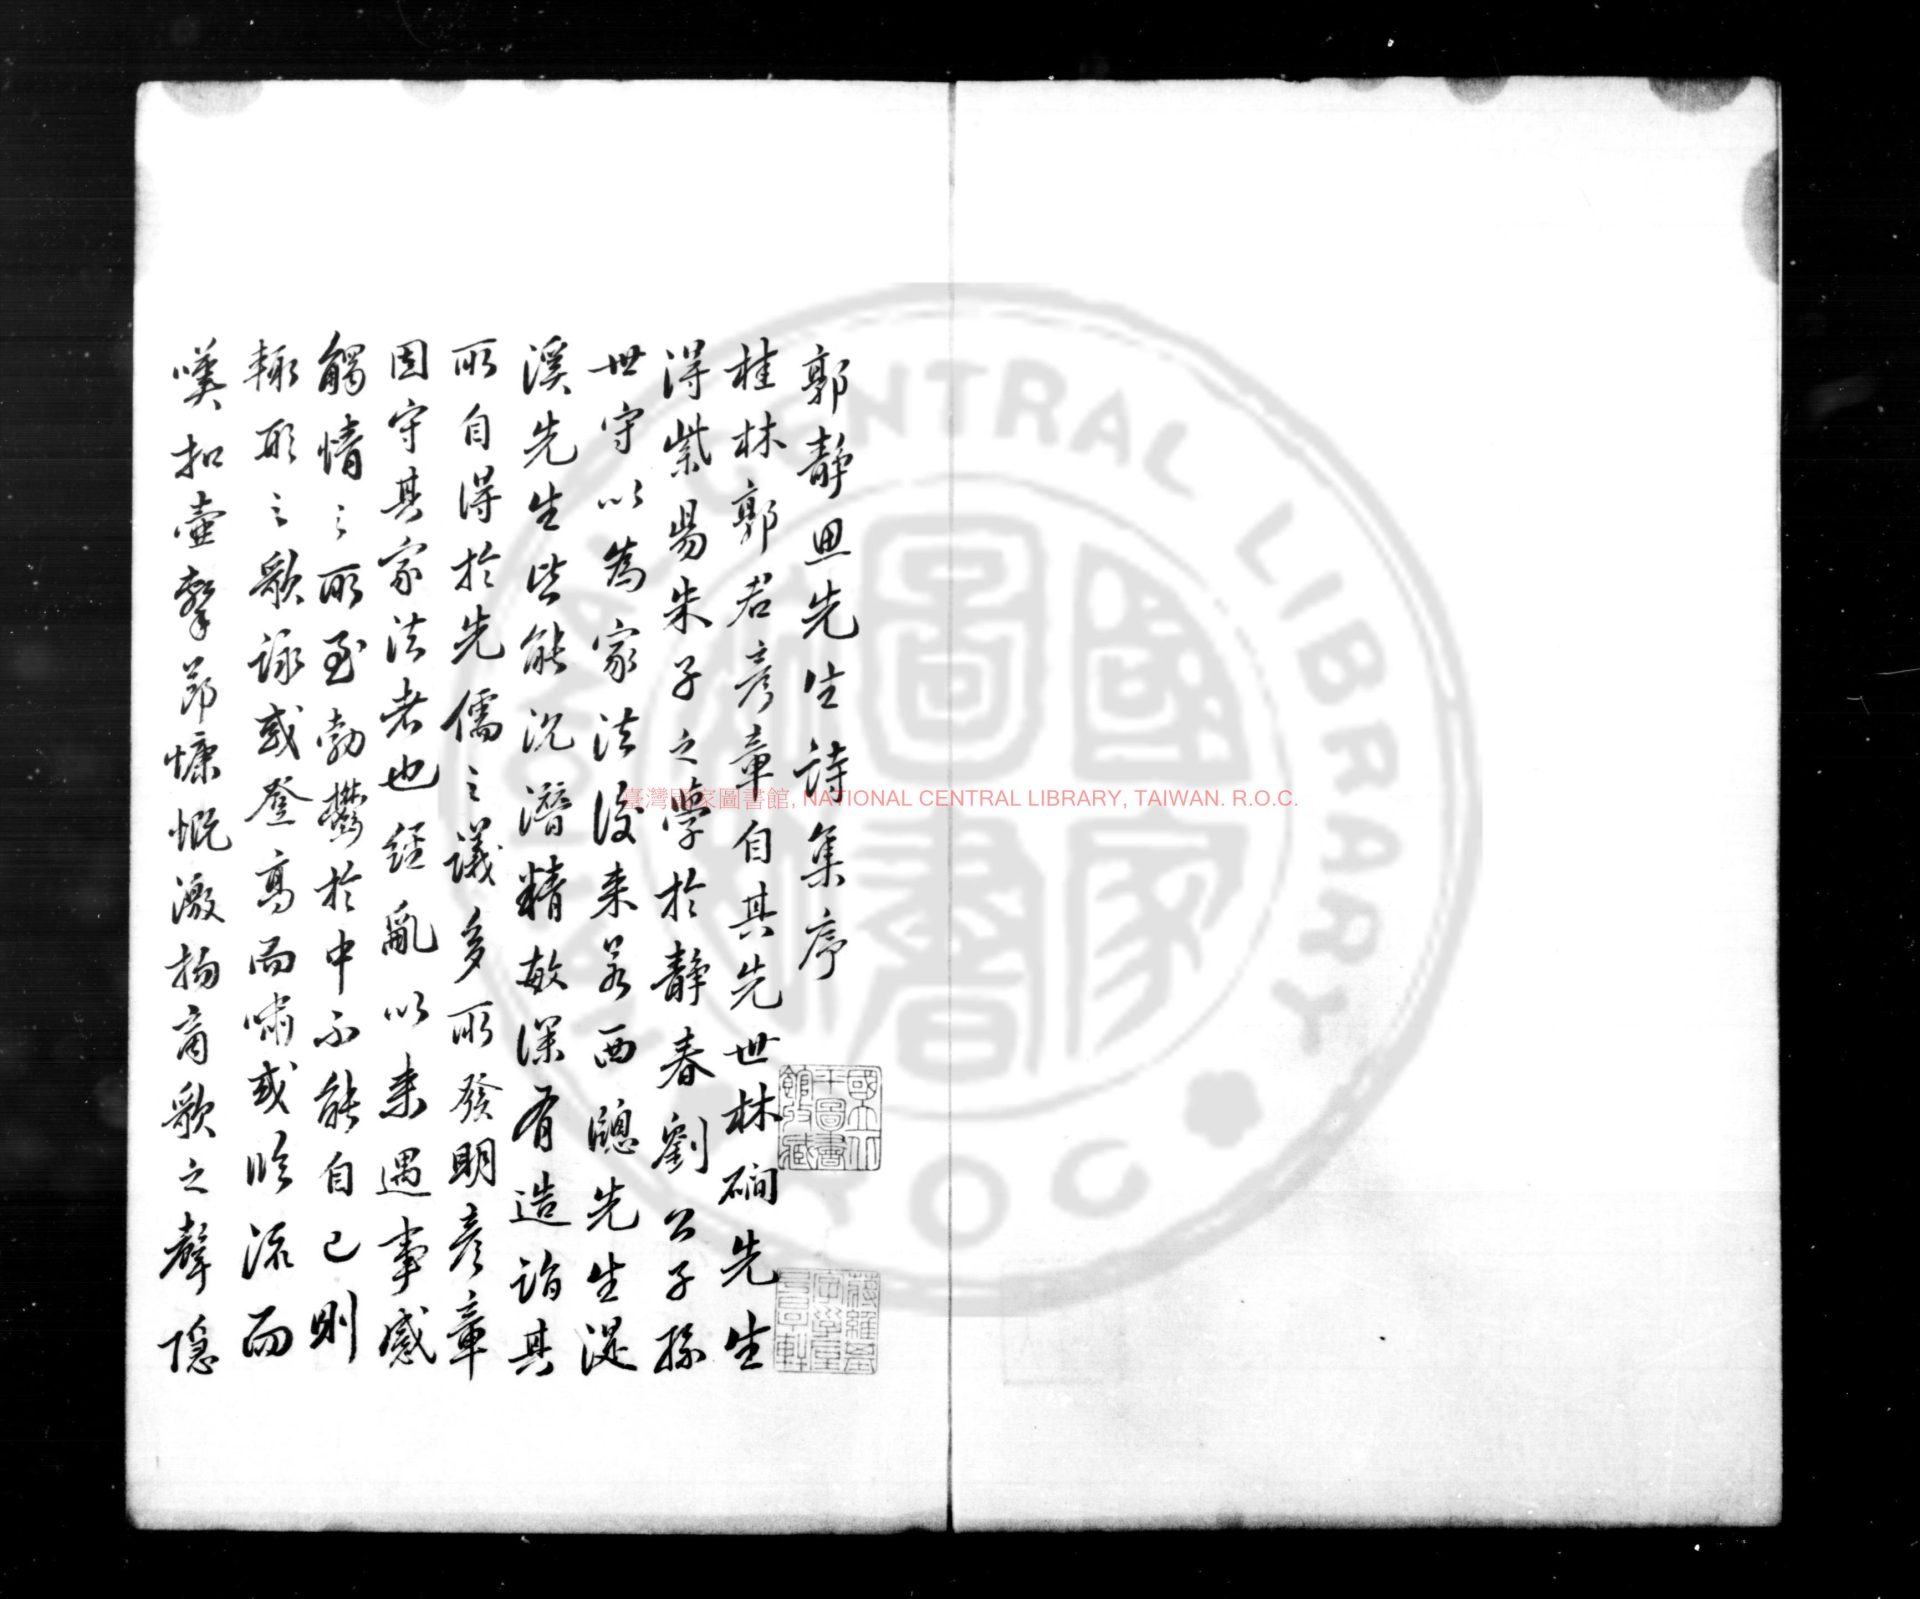 郭靜思先生詩集序
桂林郭君彥章自其先世林硐先生
得紫陽朱子之學於靜春劉公子孫
世守以為家法後来若西隠先生湜
溪先生皆能沉潛精敏深有造詣其
所自得於先儒之議多所發明彥章
固守其家法者也經亂以来遇事感
觸情之所至勃鬱於中不能自已則
輙形之歌詠或登髙而嘯或臨流而
嘆扣壷擊節慷慨激揚商歌之聲隠
國立北
平圖書
館收藏
臺灣國家圖書館, NATIONAL CENTRAL LIBRARY, TAIWAN. R.O.C.
NATIONAL CENTRAL LIBRARY
國家圖書